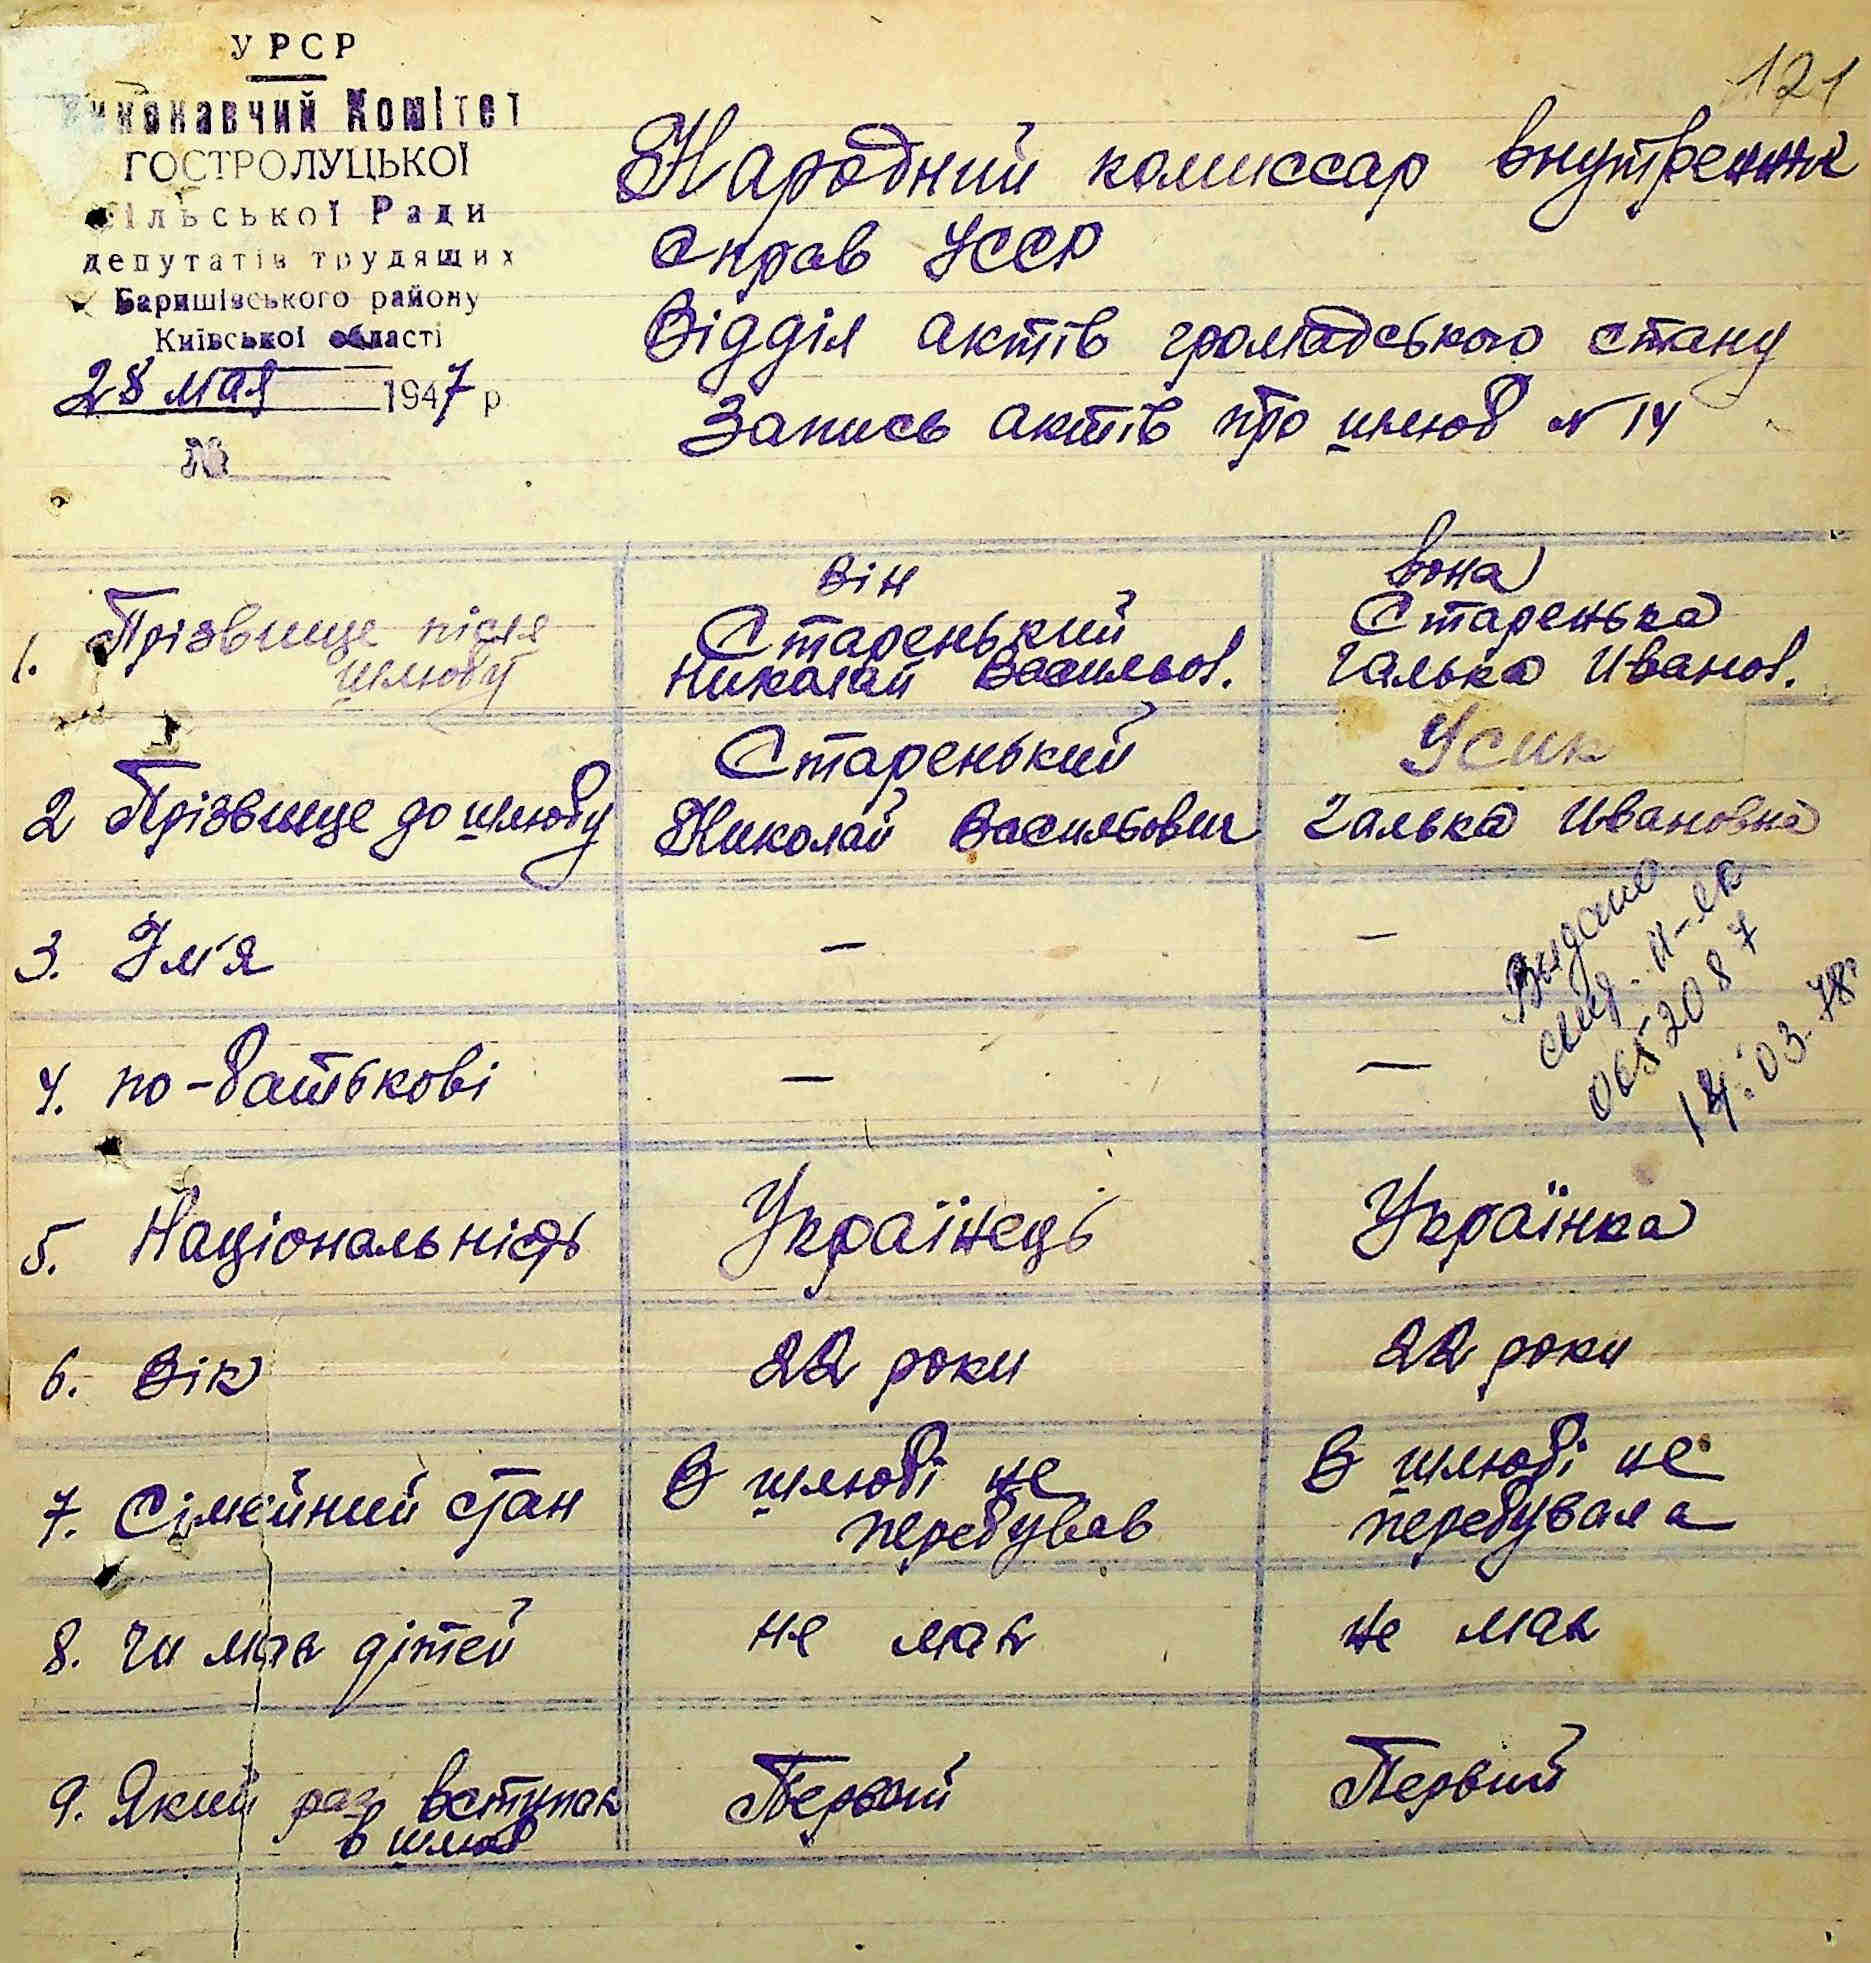 УРСР
Виконавчий Комітет
ГОСТРОЛУЦЬКОЇ
Сільської Ради
депутатів трудящих
Баришівського району
Київської області
28 мая 1947 р
№
121
Народний комиссар внутренних
справ УССР
Відділ актів громадського стану
Запись актів про шлюб № 14
він
вона
1. Прізвище після шлюбу
Старенький
Николай Васильов.
Старенька
Галька Иванов.
2 Прізвище до шлюбу
Старенький
Николай Васильович
Усик
Галька Ивановна
3. Ім'я
–
–
4. по-батькові
–
–
Видано
свід. II-ЕК
065 2087
14.03.78.
5. Національність
Українець
Українка
6. Вік
22 роки
22 роки
7. Сімейний стан
В шлюбі не
перебував
В шлюбі не
перебувала
8. Чи має дітей
не має
не має
9. Який раз вступає
в шлюб
Первий
Первий